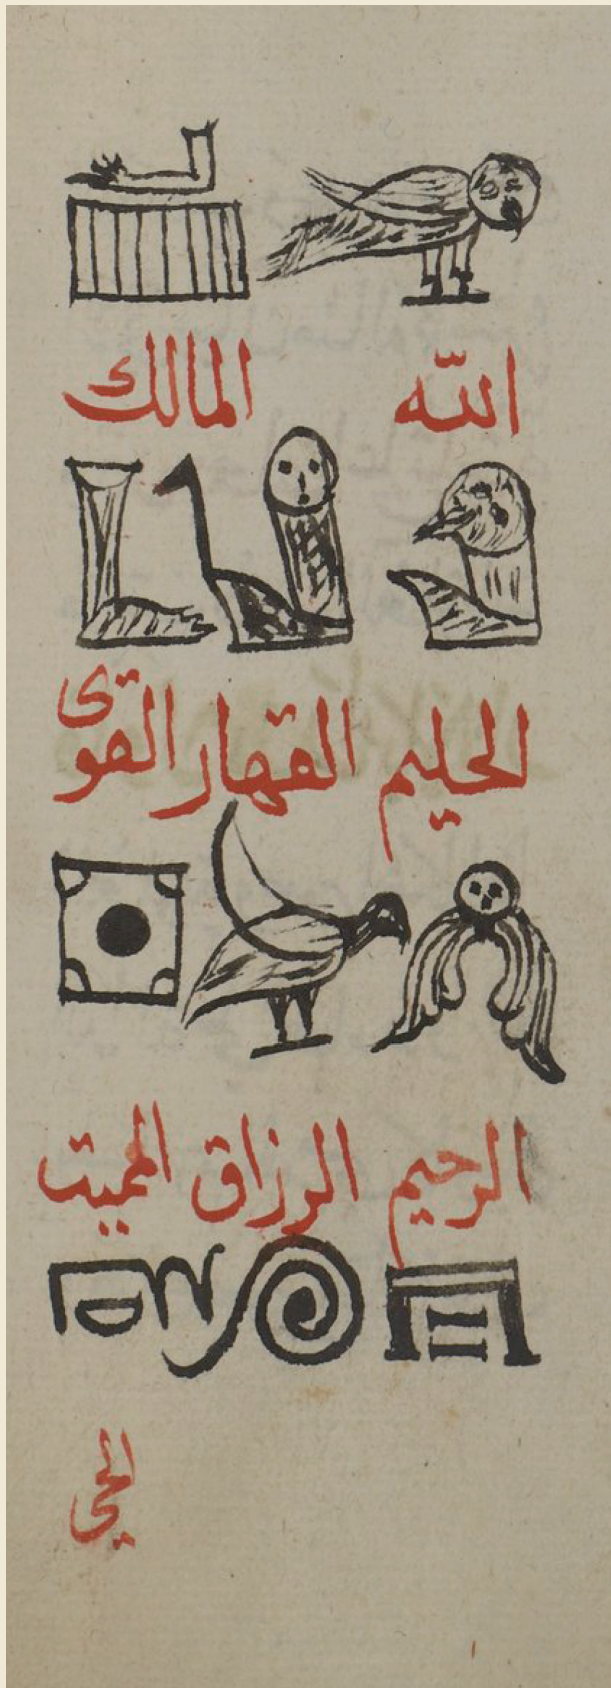 الله المالك
الحليم القهار القوى
الرحيم الرزاق المميت
المحيى